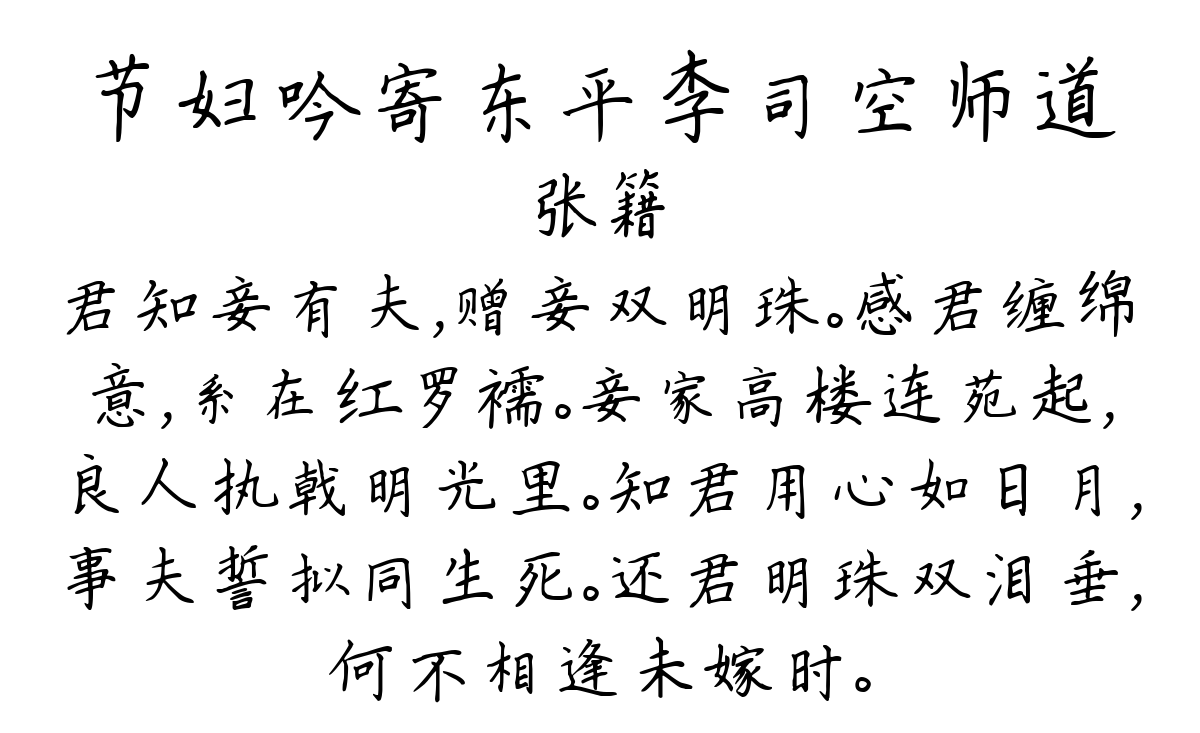 节妇吟寄东平李司空师道
张籍
君知妾有夫,赠妾双明珠。感君缠绵
意,系在红罗襦。妾家高楼连苑起,
良人执戟明光里。知君用心如日月,
事夫誓拟同生死。还君明珠双泪垂,
何不相逢未嫁时。